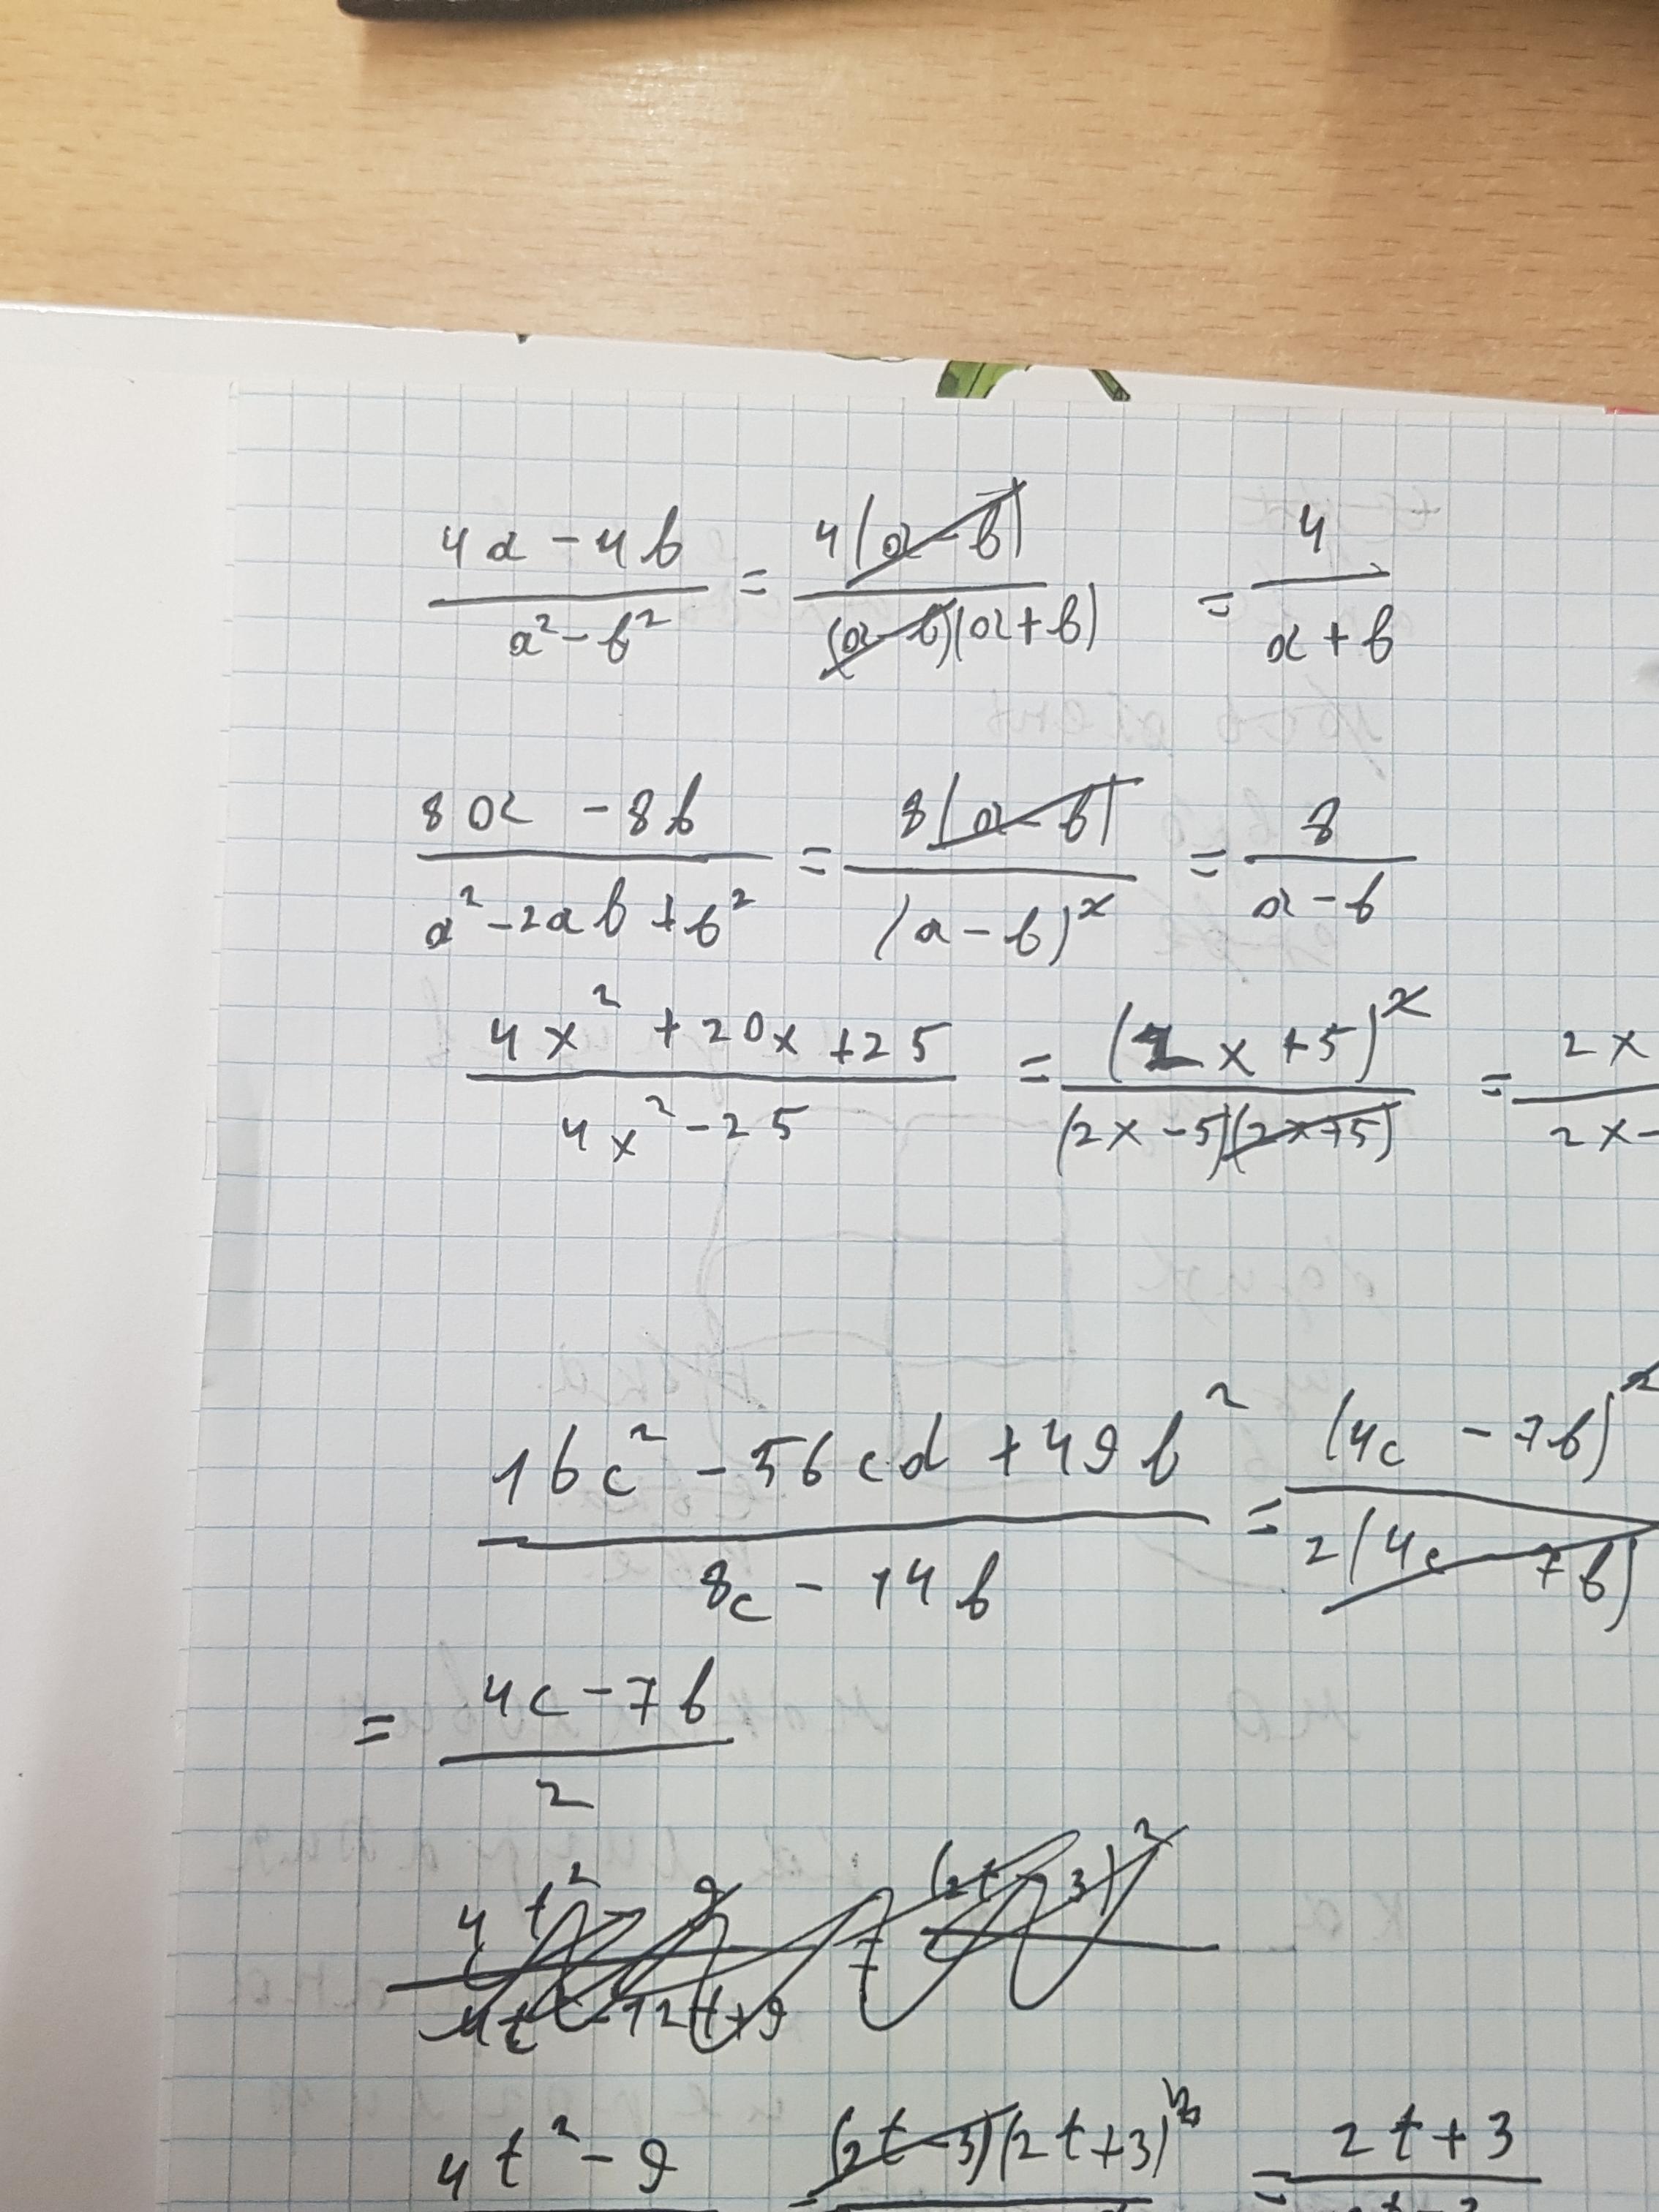 4a - 4b / a² - b² = 4(a - b) / (a - b)(a + b) = 4 / a + b
8a - 8b / a² - 2ab + b² = 8(a - b) / (a - b)² = 8 / a - b
4x² + 20x + 25 / 4x² - 25 = (2x + 5)² / (2x - 5)(2x + 5) = 2x / 2x -
16c² - 56cd + 49b² / 8c - 14b = (4c - 7b)² / 2(4c - 7b)
= 4c - 7b / 2
4t² - 9 / 4t² - 12t + 9 = (2t - 3)²
4t² - 9 = (2t - 3)(2t + 3) = 2t + 3